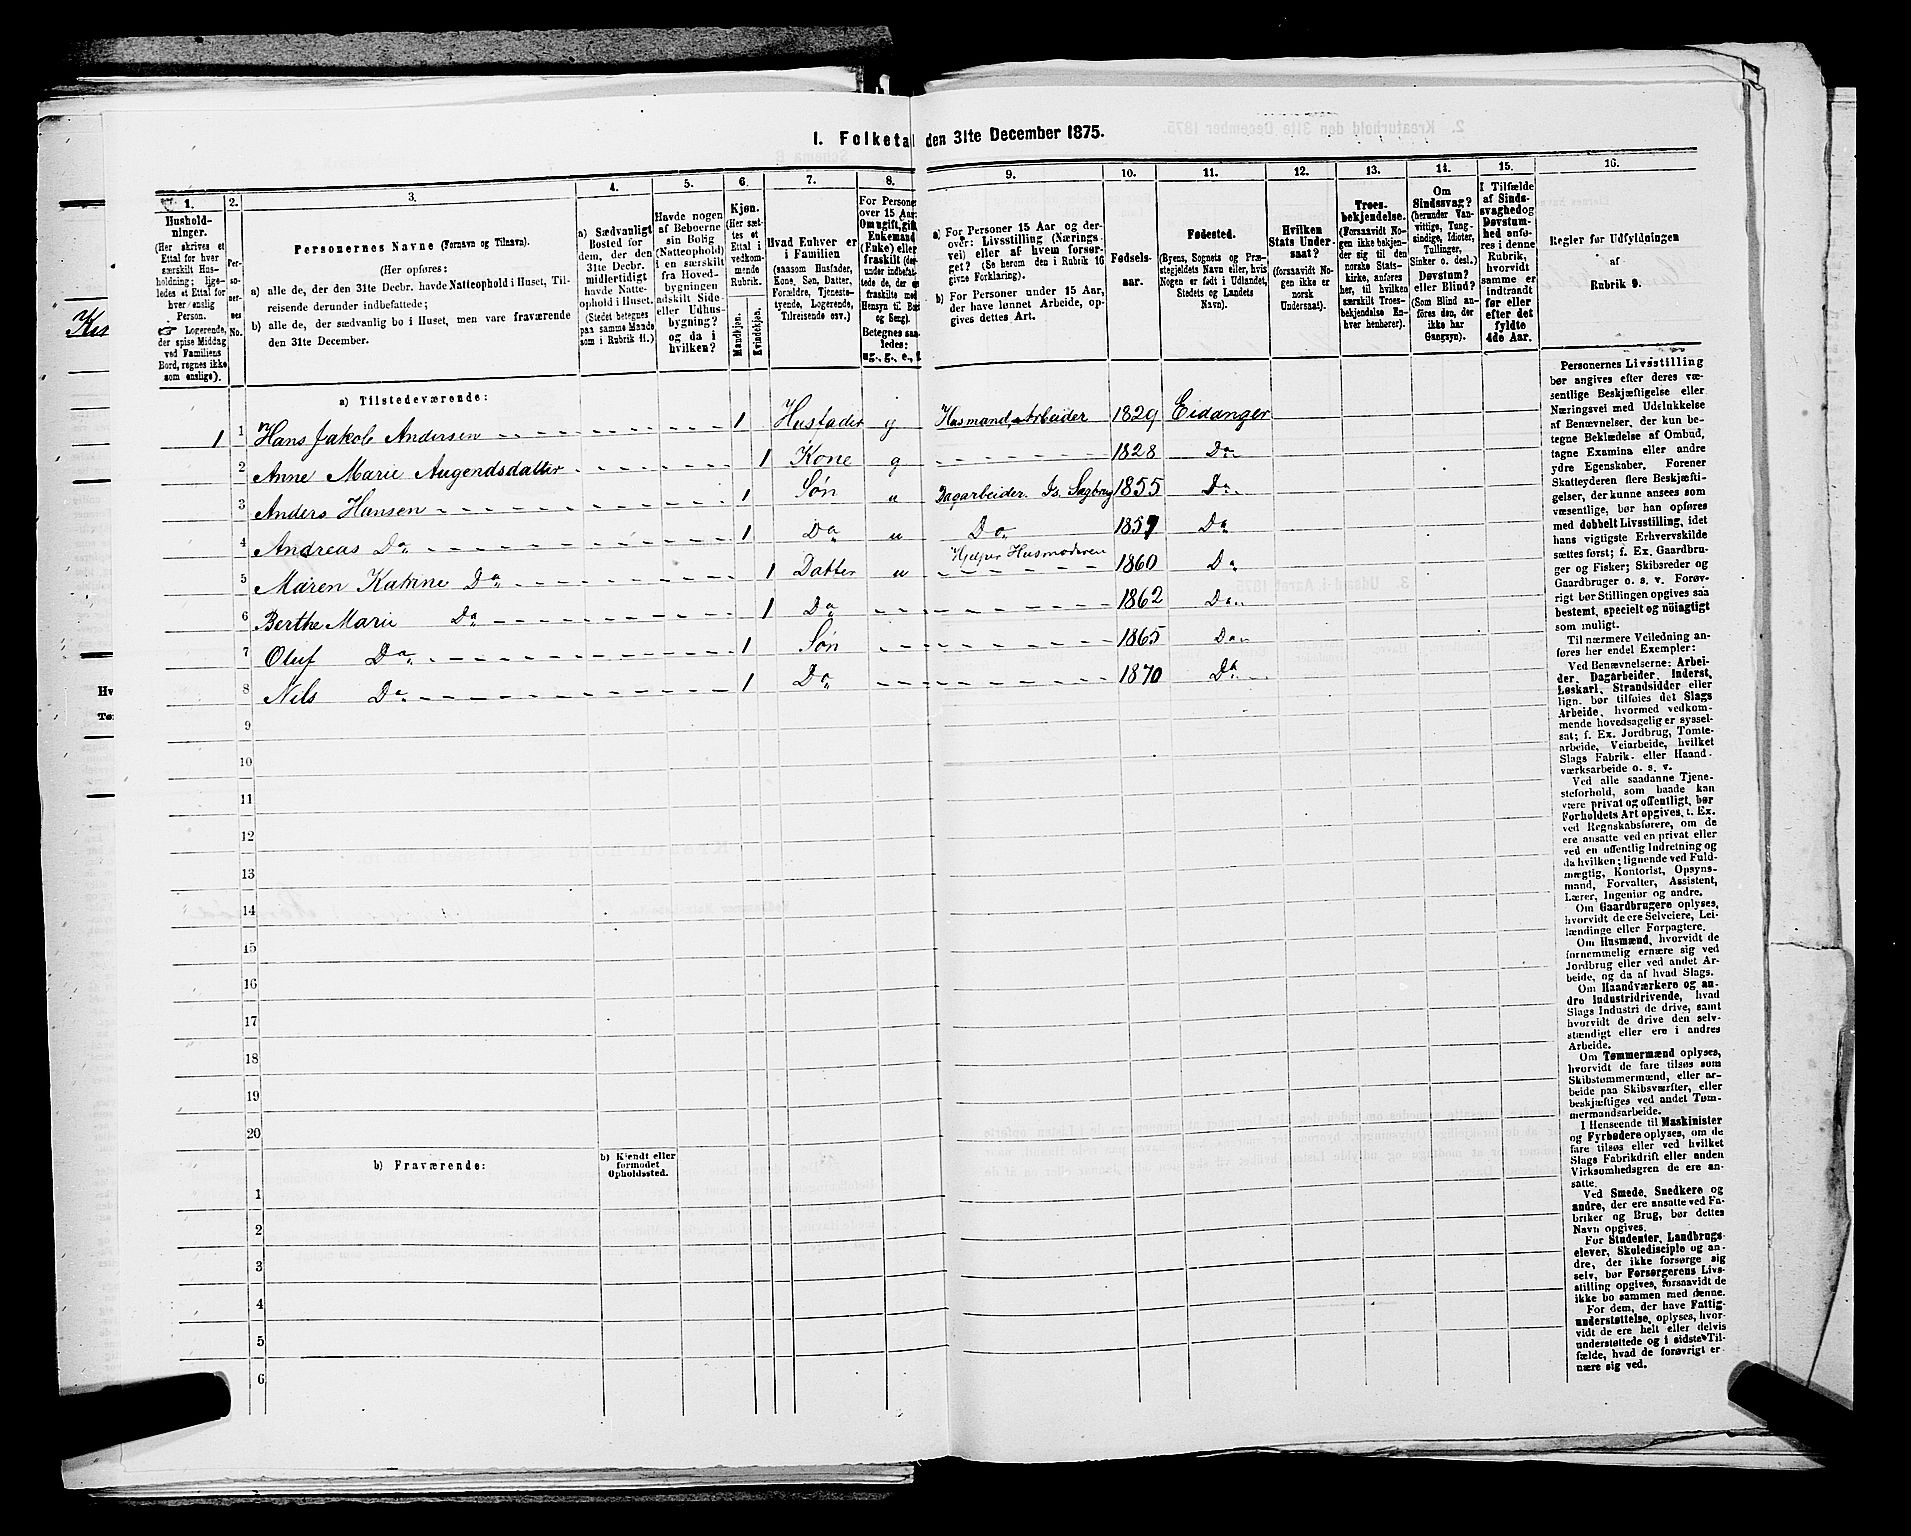 I. Folketal den 31te December 1875.
1. 2. 3. 4. 5. 6. 7. 8. 9. 10. 11. 12. 13. 14. 15. 16.
Husholdninger.
(Her skrives et
Ettal for hver
særskilt Hus-
holdning; lige-
ledes et Ettal for
hver enslig
Person.
☞ Logerende,
der spise Middag
ved Familiens
Bord, regnes ikke
som enslige).
Per-
so-
ner-
nes
No.
Personernes Navne (Fornavn og Tilnavn).
(Her opføres:
a) alle de, der den 31te Decbr. havde Natteophold i Huset, Til-
reisende derunder indbefattede;
b) alle de, der sædvanlig bo i Huset, men vare fraværende
den 31te December.
a) Sædvanligt
Bosted for
dem, der den
31te Decbr.
midlertidigt
havde Natte-
ophold i Huset.
(Stedet betegnes
paa samme Maade
som i Rubrik 11.)
Havde nogen
af Beboerne
sin Bolig
(Natteophold)
i en særskilt
fra Hoved-
bygningen
adskilt Side-
eller Udhus-
bygning?
og da i
hvilken?
Kjøn.
(Her sæt-
tes et
Ettal i
vedkom-
mende
Rubrik.
Mandkjøn.
Kvindekjøn.
Hvad Enhver er
i Familien
(saasom Husfader,
Kone, Søn, Datter,
Forældre, Tjeneste-
tyende, Logerende,
Tilreisende osv.)
For Personer
over 15 Aar:
Om ugift, gift
Enkemand
(Enke) eller
fraskilt (der-
under indbefat-
tede de, der ere
fraskilte med
Hensyn til Bord
og Seng).
Betegnes saa-
ledes:
ug., g., e., f.
a) For Personer 15 Aar og der-
over: Livsstilling (Nærings-
vei) eller af hvem forsør-
get? (Se herom den i Rubrik 16
givne Forklaring).
b) For Personer under 15 Aar,
der have lønnet Arbeide, op-
gives dettes Art.
Fødsels-
aar.
Fødested.
(Byens, Sognets og Præ-
stegjeldets Navn eller, hvis
Nogen er født i Udlandet,
Stedets og Landets
Navn).
Hvilken
Stats Under-
saat?
(forsaavidt No-
gen ikke er
norsk
Undersaat).
Troes-
bekjendelse.
(Forsaavidt No-
gen ikke bekjen-
der sig til den
norske Stats-
kirke, anføres
her, til hvilken
særskilt Troes-
bekjendelse En-
hver henhører).
Om
Sindssvag?
(herunder Van-
vittige, Tung-
sindige, Idioter,
Tullinger,
Sinker o. desl.)
Døvstum?
eller Blind?
(Som Blind an-
føres den, der
ikke har
Gangsyn).
I Tilfælde
af Sinds-
svaghed og
Døvstum-
hed anfø-
res i denne
Rubrik,
hvorvidt
samme er
indtraadt
før eller
efter det
fyldte
4de Aar.
Regler for Udfyldningen
af
Rubrik 9.
a) Tilstedeværende:
1 1 Hans Jakob Andersen 1 Husfader g Husmand, Arbeider 1829 Eidanger
2 Anne Marie Augendsdatter 1 Kone g 1828 Do
3 Anders Hansen 1 Søn u Dagarbeider. Is. Sagbrug 1855 Do
4 Andreas Do 1 Do u Do 1857 Do
5 Maren Katrine Do 1 Datter u Hjelper Husmoderen 1860 Do
6 Berthe Marie Do 1 Do 1862 Do
7 Oluf Do 1 Søn 1865 Do
8 Nils Do 1 Do 1870 Do
9
10
11
12
13
14
15
16
17
18
19
20
b) Fraværende:
b) Kjendt eller
formodet
Opholdssted.
1
2
3
4
5
6
Personernes Livsstilling
bør angives efter deres væ-
sentlige Beskjæftigelse eller
Næringsvei med Udelukkelse
af Benævnelser, der kun be-
tegne Beklædelse af Ombud,
tagne Examina eller andre
ydre Egenskaber. Forener
Skatteyderen flere Beskjæfti-
gelser, der kunne ansees som
væsentlige, bør han opføres
med dobbelt Livsstilling, idet
hans vigtigste Erhvervskilde
sættes først; f. Ex. Gaardbru-
ger og Fisker; Skibsreder og
Gaardbruger o. s. v. Forøv-
rigt bør Stillingen opgives saa
bestemt, specielt og nöiagtigt
som muligt.
Til nærmere Veiledning an-
føres her endel Exempler:
Ved Benævnelserne: Arbei-
der, Dagarbeider, Inderst,
Løskarl, Strandsidder eller
lign. bør tilføies det Slags
Arbeide, hvormed vedkom-
mende hovedsagelig er syssel-
sat; f. Ex. Jordbrug, Tomte-
arbeide, Veiarbeide, hvilket
Slags Fabrik- eller Haand-
værksarbeide o. s. v.
Ved alle saadanne Tjene-
steforhold, som baade kan
være privat og offentligt, bør
Forholdets Art opgives, t. Ex.
ved Regnskabsførere, om de
ere ansatte ved en privat eller
ved en offentlig Indretning og
da hvilken; lignende ved Fuld-
mægtig, Kontorist, Opsyns-
mand, Forvalter, Assistent,
Lærer, Ingeniør og andre.
Om Gaardbrugere oplyses,
hvorvidt de ere Selveiere, Lei-
lændinge eller Forpagtere.
Om Husmænd, hvorvidt de
fornemmelig ernære sig ved
Jordbrug eller ved andet Ar-
beide, og da af hvad Slags.
Om Haandværkere og an-
dre Industridrivende, hvad
Slags Industri de drive, samt
hvorvidt de drive den selv-
stændigt eller ere i andres
Arbeide.
Om Tømmermænd oplyses,
hvorvidt de fare tilsøs som
Skibstømmermænd, eller ar-
beide paa Skibsværfter, eller
beskjæftiges ved andet Tøm-
mermandsarbeide.
I Henseende til Maskinister
og Fyrbødere oplyses, om de
fare tilsøs eller ved hvilket
Slags Fabrikdrift eller anden
Virksomhedsgren de ere an-
satte.
Ved Smede, Snedkere og
andre, der ere ansatte ved Fa-
briker og Brug, bør dettes
Navn opgives.
For Studenter, Landbrugs-
elever, Skoledisciple og an-
dre, der ikke forsørge sig
selv, bør Forsørgerens Livs-
stilling opgives, forsaavidt de
ikke bo sammen med denne.
For dem, der have Fattig-
understøttelse, oplyses, hvor-
vidt de ere helt eller delvis
understøttede og i sidste Til-
fælde, hvad de forøvrigt er-
nære sig ved.